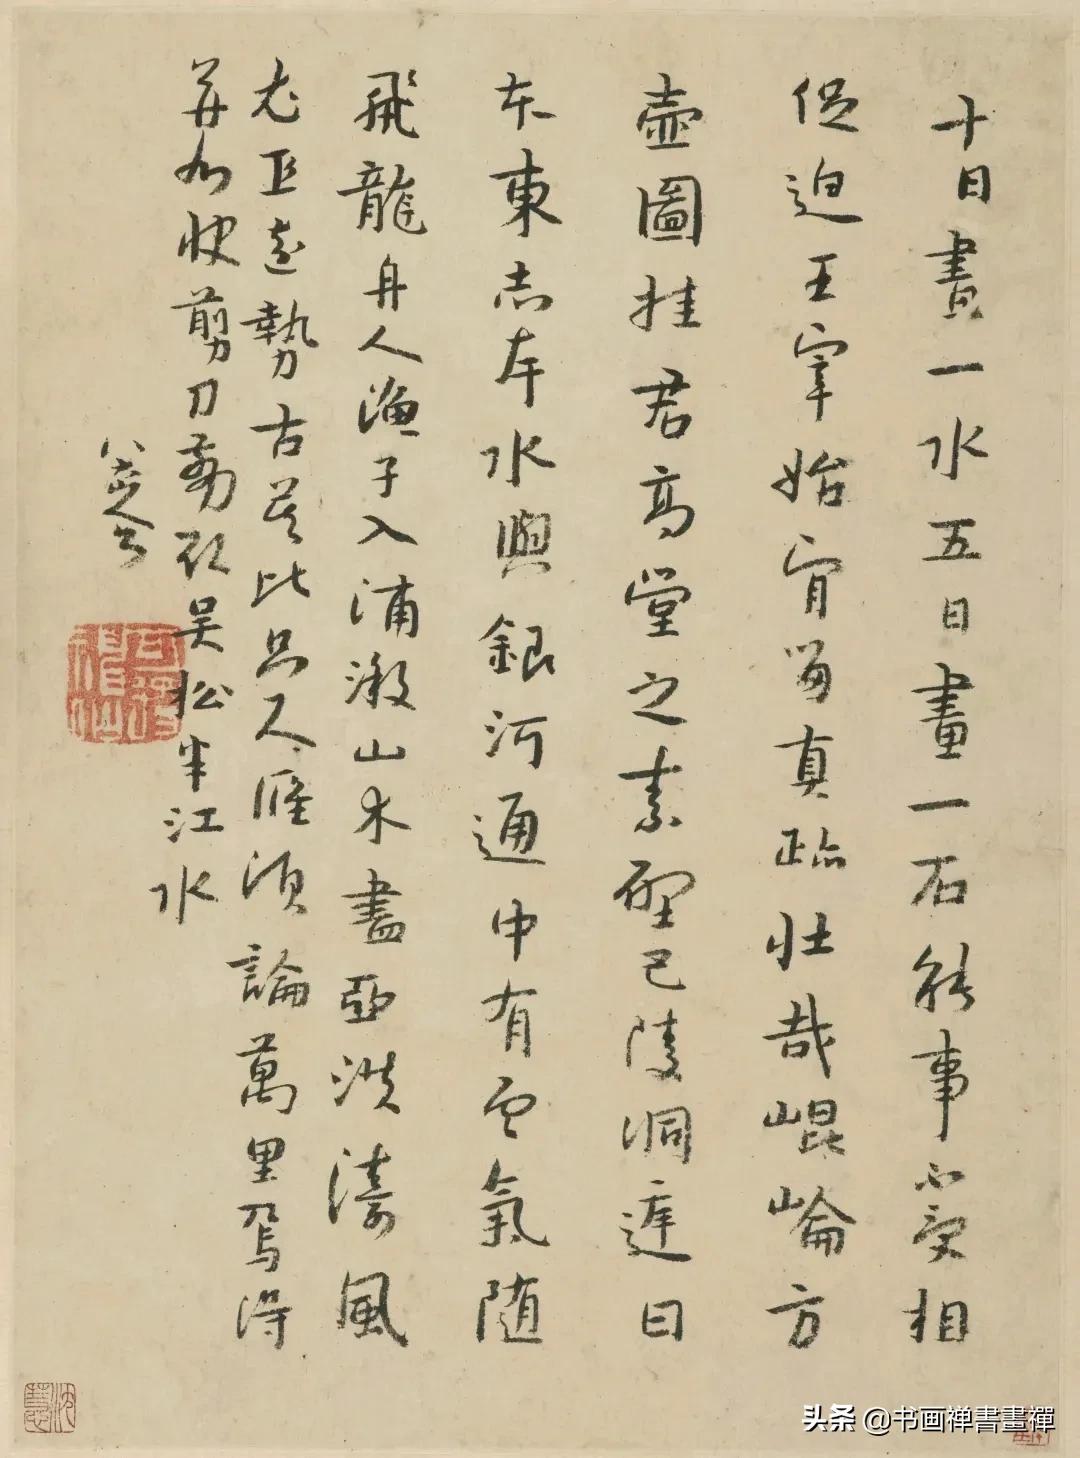 十日畫一水五日畫一石能事不受相
促迫王宰始肯留真跡壯哉崐崘方
壺圖挂君高堂之素壁巴陵洞庭日
本東赤岸水與銀河通中有雲氣隨
飛龍舟人漁子入浦漵山木盡亞洪濤風
尤工遠勢古莫比咫尺應須論萬里焉得
并州快剪刀剪取吳松半江水
八大山人
头条 @书画禅書畫禪